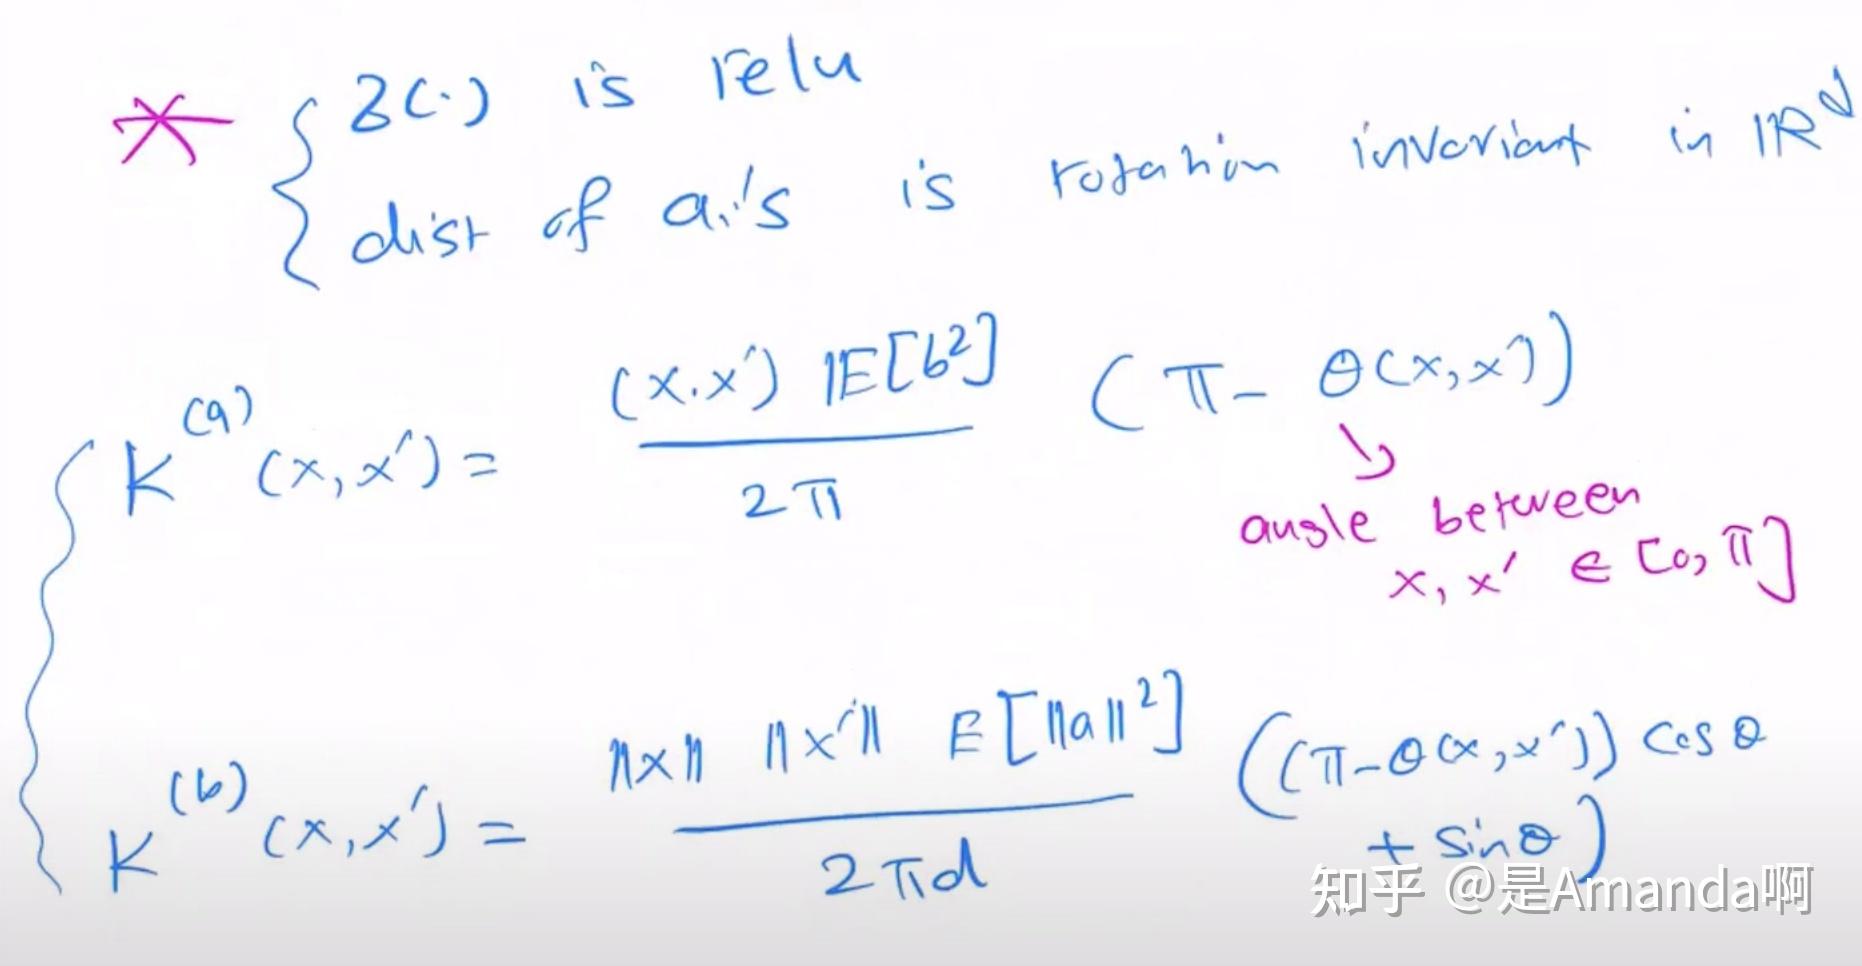 * { 3(·) is relu
dist of ai's is rotation invariant in ℝ^d
K^(a) (x, x′) = (x.x′) 𝔼[b²] / 2π (π − θ(x, x′))
↘
angle between
x, x′ ∈ [0, π]
K^(b) (x, x′) = ‖x‖ ‖x′‖ E[‖a‖²] / 2πd ((π−θ(x, x′)) cos θ
+ sinθ)
知乎 @是Amanda啊